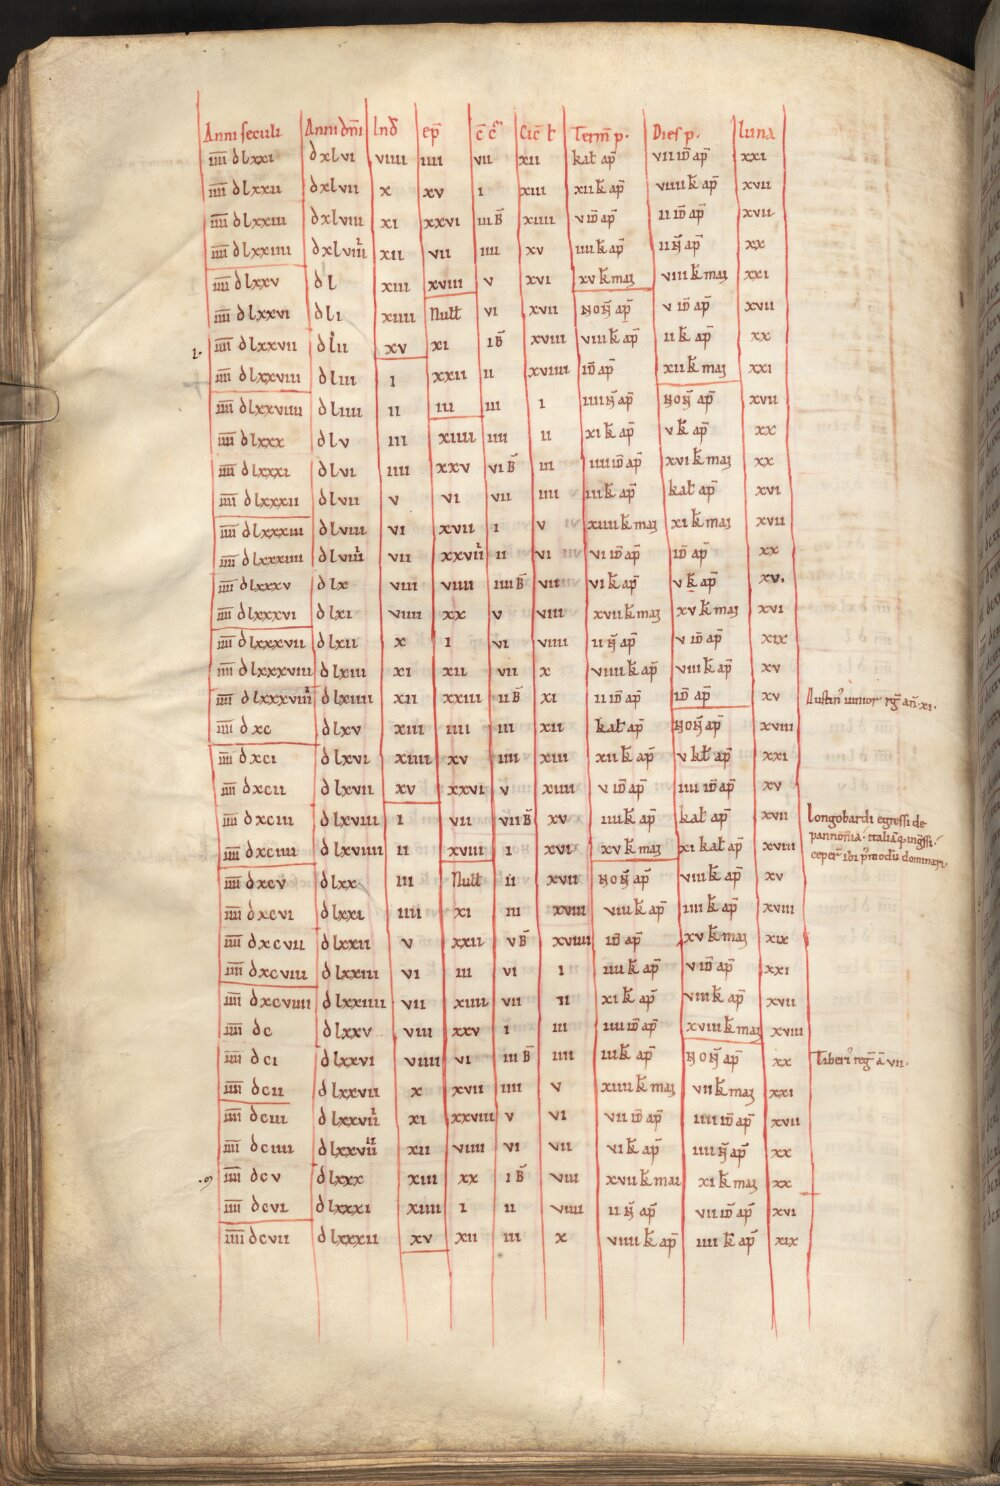 Anni seculi Anni dñi Ind̄ ep̄ c̄ c̄ꝰ Cic̄ ł Term̄ p. Dies p. luna
īīīī dlxxi dxlvi viiii iiii vii xii kał ap̄ vii id̄ ap̄ xxi
īīīī dlxxii dxlvii x xv i xiii xii k̄ ap̄ viiii k̄ ap̄ xvii
īīīī dlxxiii dxlviii xi xxvi iii B̄ xiiii v id̄ ap̄ ii id̄ ap̄ xvii
īīīī dlxxiiii dxlviiii xii vii iiii xv iiii k̄ ap̄ ii n̄ ap̄ xx
īīīī dlxxv dl xiii xviii v xvi xv k̄ mai viii k̄ mai xxi
īīīī dlxxvi dli xiiii Nułł vi xvii non̄ ap̄ v id̄ ap̄ xvii
īīīī dlxxvii dlii xv xi i B̄ xviii viii k̄ ap̄ ii k̄ ap̄ xx
īīīī dlxxviii dliii i xxii ii xviiii id̄ ap̄ xii k̄ mai xxi
īīīī dlxxviiii dliiii ii iii iii i iiii n̄ ap̄ non̄ ap̄ xvii
īīīī dlxxx dlv iii xiiii iiii ii xi k̄ ap̄ v k̄ ap̄ xx
īīīī dlxxxi dlvi iiii xxv vi B̄ iii iiii id̄ ap̄ xvi k̄ mai xx
īīīī dlxxxii dlvii v vi vii iiii iii k̄ ap̄ kał ap̄ xvi
īīīī dlxxxiii dlviii vi xvii i v xiiii k̄ mai xi k̄ mai xvii
īīīī dlxxxiiii dlviiii vii xxviii ii vi vi id̄ ap̄ id̄ ap̄ xx
īīīī dlxxxv dlx viii viiii iiii B̄ vii vi k̄ ap̄ v k̄ ap̄ xv.
īīīī dlxxxvi dlxi viiii xx v viii xvii k̄ mai xv k̄ mai xvi
īīīī dlxxxvii dlxii x i vi viiii ii n̄ ap̄ v id̄ ap̄ xix
īīīī dlxxxviii dlxiii xi xii vii x viiii k̄ ap̄ viii k̄ ap̄ xv
īīīī dlxxxviiii dlxiiii xii xxiii ii B̄ xi ii id̄ ap̄ id̄ ap̄ xv Iustinꝰ iunior rḡ añ xi.
īīīī dxc dlxv xiii iiii iii xii kał ap̄ non̄ ap̄ xviii
īīīī dxci dlxvi xiiii xv iiii xiii xii k̄ ap̄ v kł ap̄ xxi
īīīī dxcii dlxvii xv xxvi v xiiii v id̄ ap̄ iiii id̄ ap̄ xv
īīīī dxciii dlxviii i vii vii B̄ xv iiii k̄ ap̄ kał ap̄ xvii longobardi egressi de
pannonia. italiāq; ingssi.
īīīī dxciiii dlxviiii ii xviii i xvi xv k̄ mai xi kał ap̄ xviii ceper̄ ibi p̄modū dominari.
īīīī dxcv dlxx iii Nułł ii xvii non̄ ap̄ viii k̄ ap̄ xv
īīīī dxcvi dlxxi iiii xi iii xviii viii k̄ ap̄ iiii k̄ ap̄ xviii
īīīī dxcvii dlxxii v xxii v B̄ xviiii id̄ ap̄ xv k̄ mai xix
īīīī dxcviii dlxxiii vi iii vi i iiii k̄ ap̄ v id̄ ap̄ xxi
īīīī dxcviiii dlxxiiii vii xiiii vii ii xi k̄ ap̄ viii k̄ ap̄ xvii
īīīī dc dlxxv viii xxv i iii iiii id̄ ap̄ xviii k̄ mai xviii
īīīī dci dlxxvi viiii vi iii B̄ iiii iii k̄ ap̄ non̄ ap̄ xx Tiberꝰ reḡ ā vii.
īīīī dcii dlxxvii x xvii iiii v xiiii k̄ mai vii k̄ mai xxi
īīīī dciii dlxxviii xi xxviii v vi vii id̄ ap̄ iiii id̄ ap̄ xvii
īīīī dciiii dlxxviiii xii viiii vi vii vi k̄ ap̄ iiii n̄ ap̄ xx
īīīī dcv dlxxx xiii xx i B̄ viii xvii k̄ mai xi k̄ mai xx
īīīī dcvi dlxxxi xiiii i ii viiii ii n̄ ap̄ vii id̄ ap̄ xvi
īīīī dcvii dlxxxii xv xii iii x viiii k̄ ap̄ iiii k̄ ap̄ xix